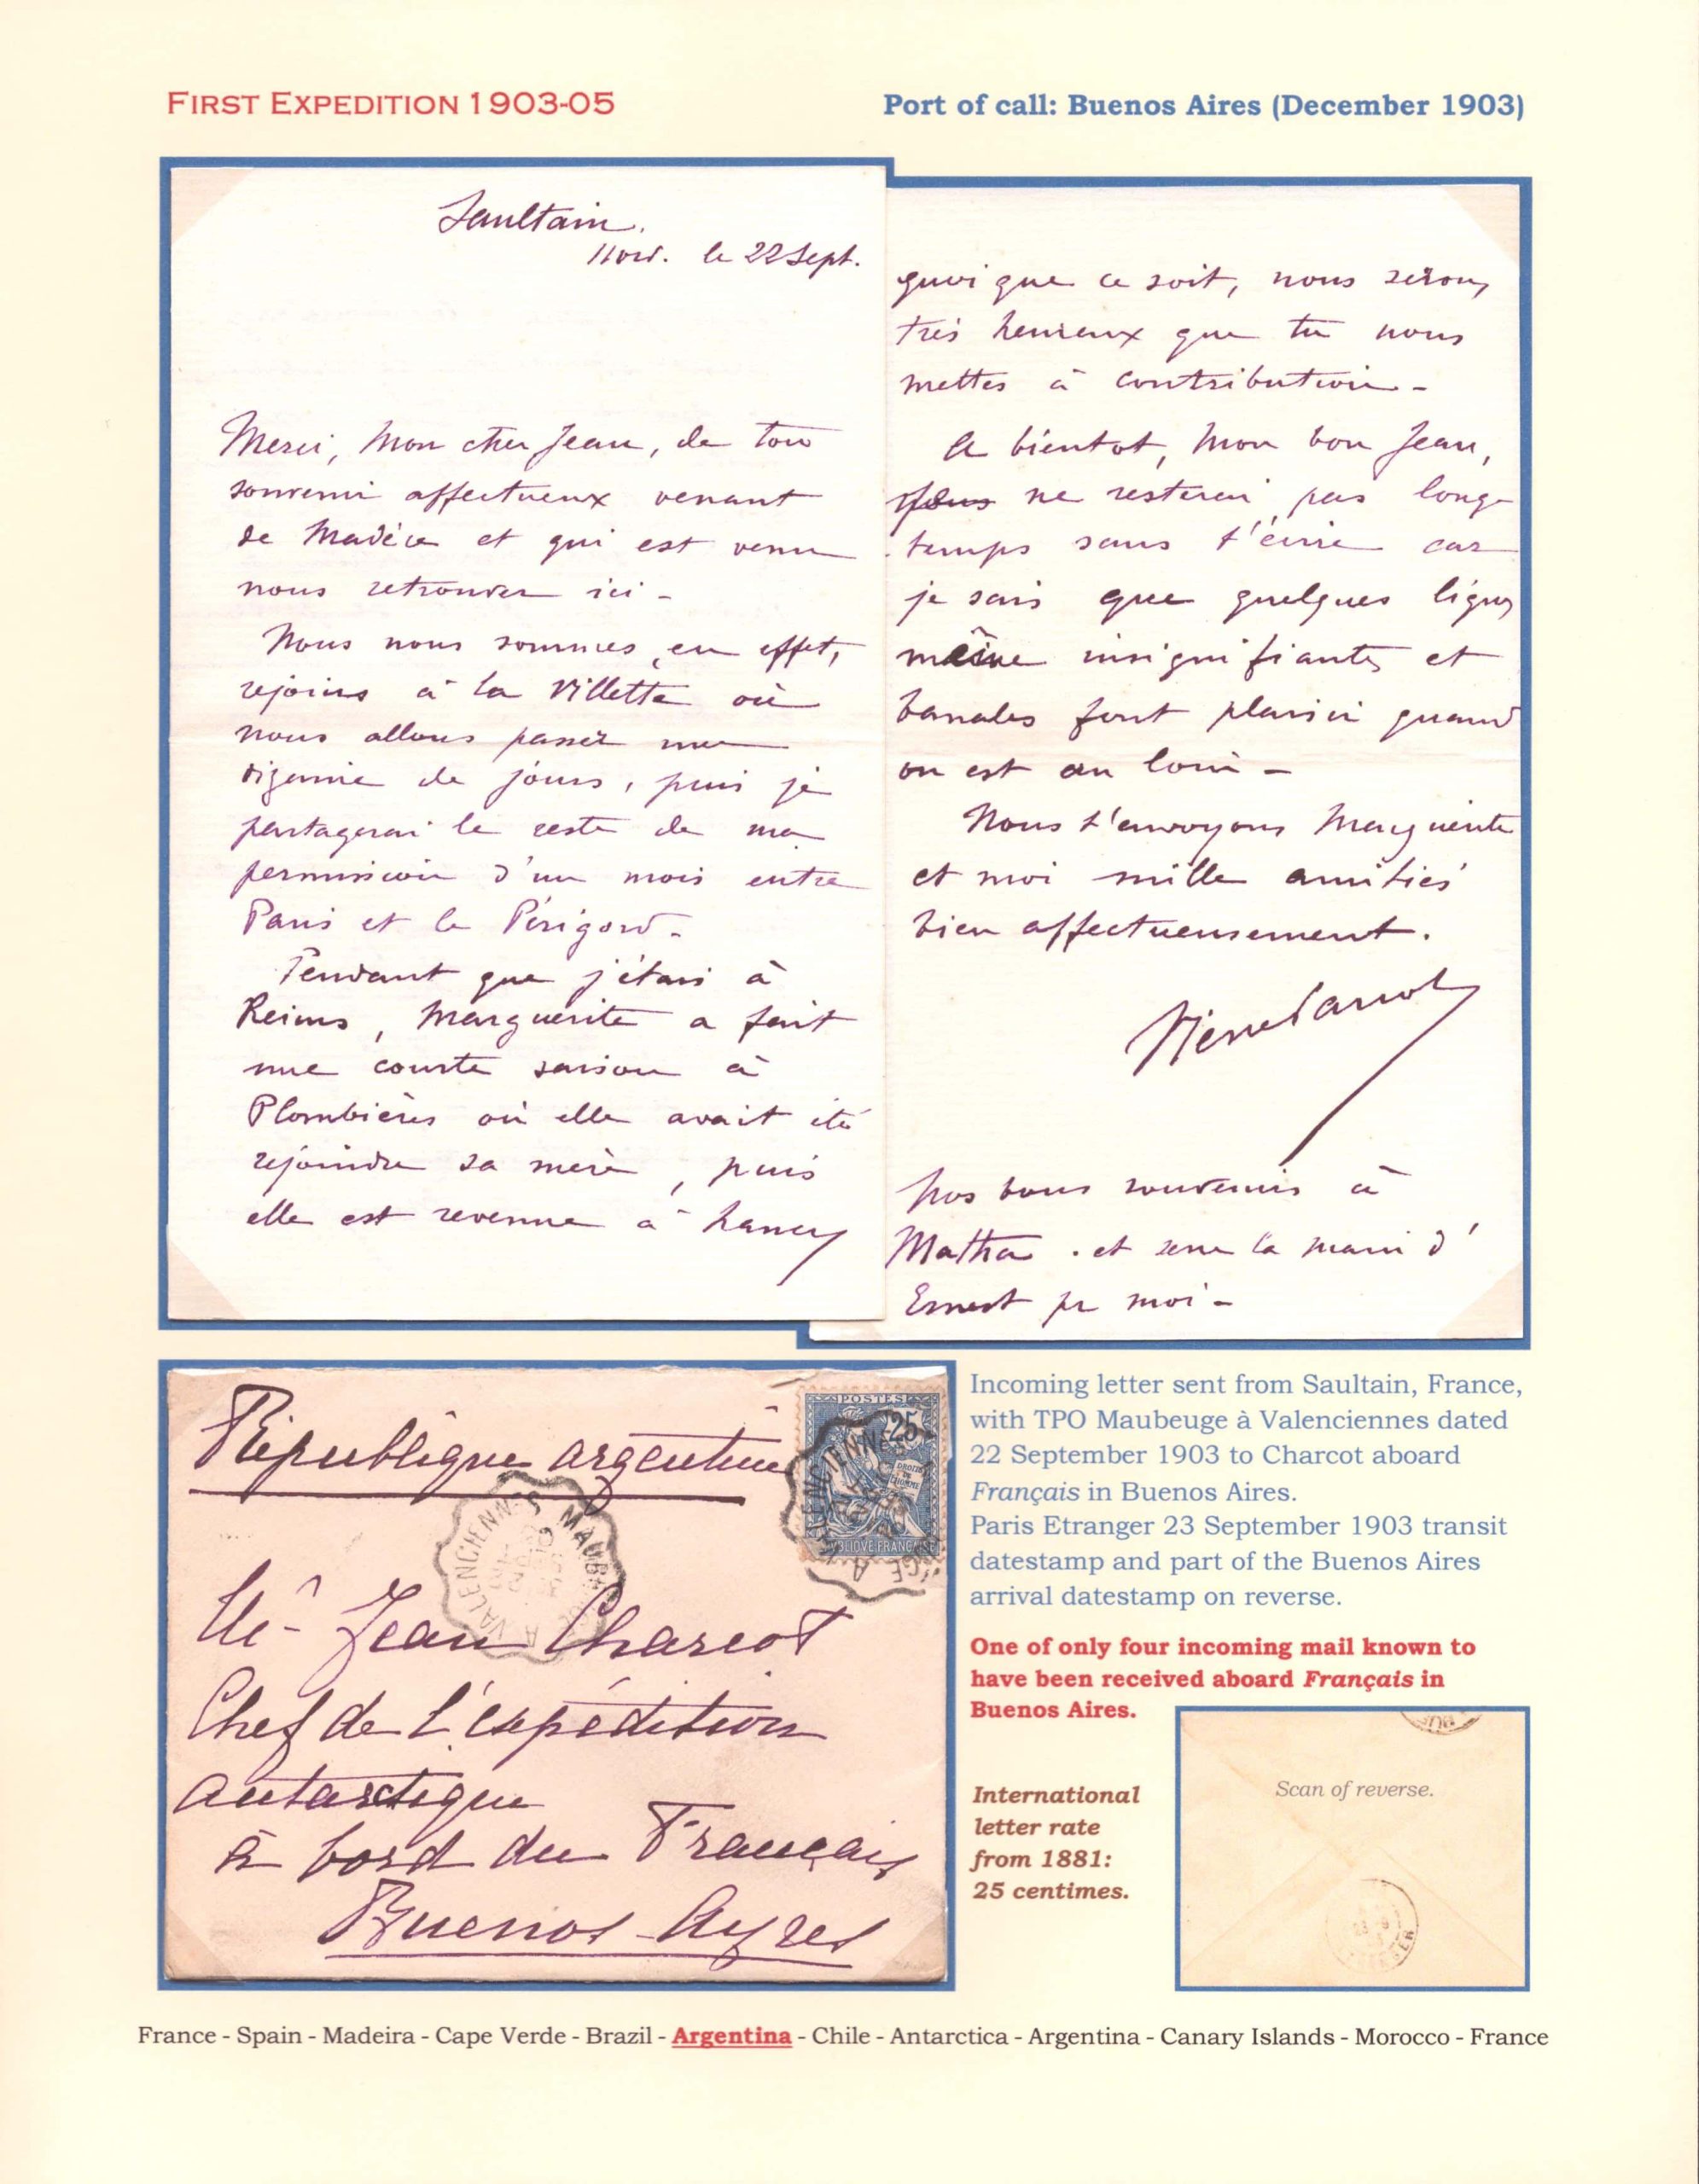 FIRST EXPEDITION 1903-05
Port of call: Buenos Aires (December 1903)
Saultain.
Nord. le 22 Sept.
Merci, Mon cher Jean, de ton
souvenir affectueux venant
de Madère et qui est venu
nous retrouver ici -
Nous nous sommes, en effet,
rejoins à la Villette où
nous allons passer une
dizaine de jours, puis je
partagerai le reste de ma
permission d'un mois entre
Paris et le Périgord.
Pendant que j'étais à
Reims, Marguerite a fait
une courte saison à
Plombières où elle avait été
rejoindre sa mère, puis
elle est revenue à Nancy
quoi que ce soit, nous serons
très heureux que tu nous
mettes à contribution -
A bientot, Mon bon Jean,
ne resterai pas long-
temps sans t'écrire car
je sais que quelques lignes
même insignifiantes et
banales font plaisir quand
on est au loin -
Nous t'envoyons Marguerite
et moi mille amitiés
bien affectueusement.
Pierre
Nos bons souvenirs à
Matha. et serre la main d'
Ernest pr moi -
République argentine
POSTES
25
DROITS
DE
L'HOMME
VALENCIENNES
MAUBEUGE A VALENCIENNES
Mr Jean Charcot
Chef de l'expédition
antarctique
à bord du Français
Buenos-Ayres
Incoming letter sent from Saultain, France,
with TPO Maubeuge à Valenciennes dated
22 September 1903 to Charcot aboard
Français in Buenos Aires.
Paris Etranger 23 September 1903 transit
datestamp and part of the Buenos Aires
arrival datestamp on reverse.
One of only four incoming mail known to
have been received aboard Français in
Buenos Aires.
International
letter rate
from 1881:
25 centimes.
Scan of reverse.
France - Spain - Madeira - Cape Verde - Brazil - Argentina - Chile - Antarctica - Argentina - Canary Islands - Morocco - France